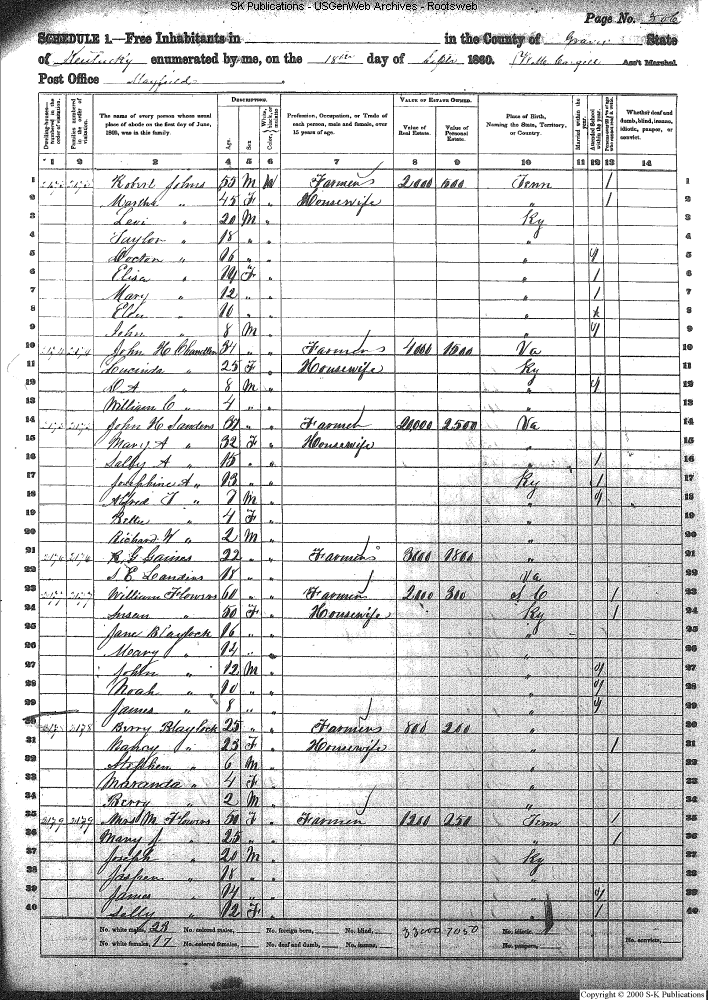 SK Publications - USGenWeb Archives - Rootsweb
Page No. 306
SCHEDULE 1.—Free Inhabitants in in the County of Graves State
of Kentucky enumerated by me, on the 18th day of Septr 1860. Ass't Marshal.
Post Office Mayfield
Dwelling-houses—numbered in the order of visitation. Families numbered in the order of visitation. The name of every person whose usual place of abode on the first day of June, 1860, was in this family. DESCRIPTION. Age. Sex. Color, White, black, or mulatto. Profession, Occupation, or Trade of each person, male and female, over 15 years of age. VALUE OF ESTATE OWNED. Value of Real Estate. Value of Personal Estate. Place of Birth, Naming the State, Territory, or Country. Married within the year. Attended School within the year. Whether deaf and dumb, blind, insane, idiotic, pauper, or convict.
1 2 3 4 5 6 7 8 9 10 11 12 13 14
1 Johns 55 M W Farmer 2000 Tenn / 1
2 Martha " 45 F " Housewife " / 2
3 Levi " 20 M " Ky 3
4 Taylor " 18 " " " 4
5 " 16 " " " 5
6 Eliza " 14 F " " 1 6
7 Mary " 12 " " " 1 7
8 " 10 " " " 8
9 John " 8 M " " 9
10 2174 2174 John H Chandler 34 " " Farmer 4000 1500 Va 10
11 Lucinda " 25 F " Housewife Ky 11
12 " 8 M " " 12
13 William C " 4 " " " 13
14 2175 2175 John H Sanders 37 " " Farmer 20,000 2500 Va 14
15 Mary A " 32 F " Housewife " 15
16 A " 15 " " " 1 16
17 Josephine A " 13 " " Ky 1 17
18 Alfred T " 7 M " " 18
19 " 4 F " " 19
20 Richard W " 2 M " " 20
21 2176 2176 R G Gaines 22 " " Farmer 3000 1800 " 21
22 18 " " Va 22
23 2177 2177 William Flowers 60 " " Farmer 2000 300 S C / 23
24 Susan " 50 F " Housewife Ky / 24
25 Jane Blaylock 16 " " " 25
26 Mary " 14 " " " 26
27 John " 12 M " " 27
28 Noah " 10 " " " 28
29 James " 8 " " " 29
30 2178 2178 Berry Blaylock 25 " " Farmer 800 200 " 30
31 Nancy " 25 F " Housewife " / 31
32 Stephen " 6 M " " 32
33 Maranda " 4 F " " 33
34 Berry " 2 M " " 34
35 2179 2179 Mrs M Flowers 50 F " Farmer 1200 250 Tenn / 35
36 Mary J " 25 " " " / 36
37 Joseph " 20 M " Ky 37
38 " 18 " " " 38
39 James " 14 " " " 39
40 Sally " 12 F " " 1 40
No. white males, 23 No. colored males, No. foreign born, No. blind, 33000 7050 No. idiotic,
No. white females, 17 No. colored females, No. deaf and dumb, No. insane, No. paupers, No. convicts,
Copyright © 2000 S-K Publications